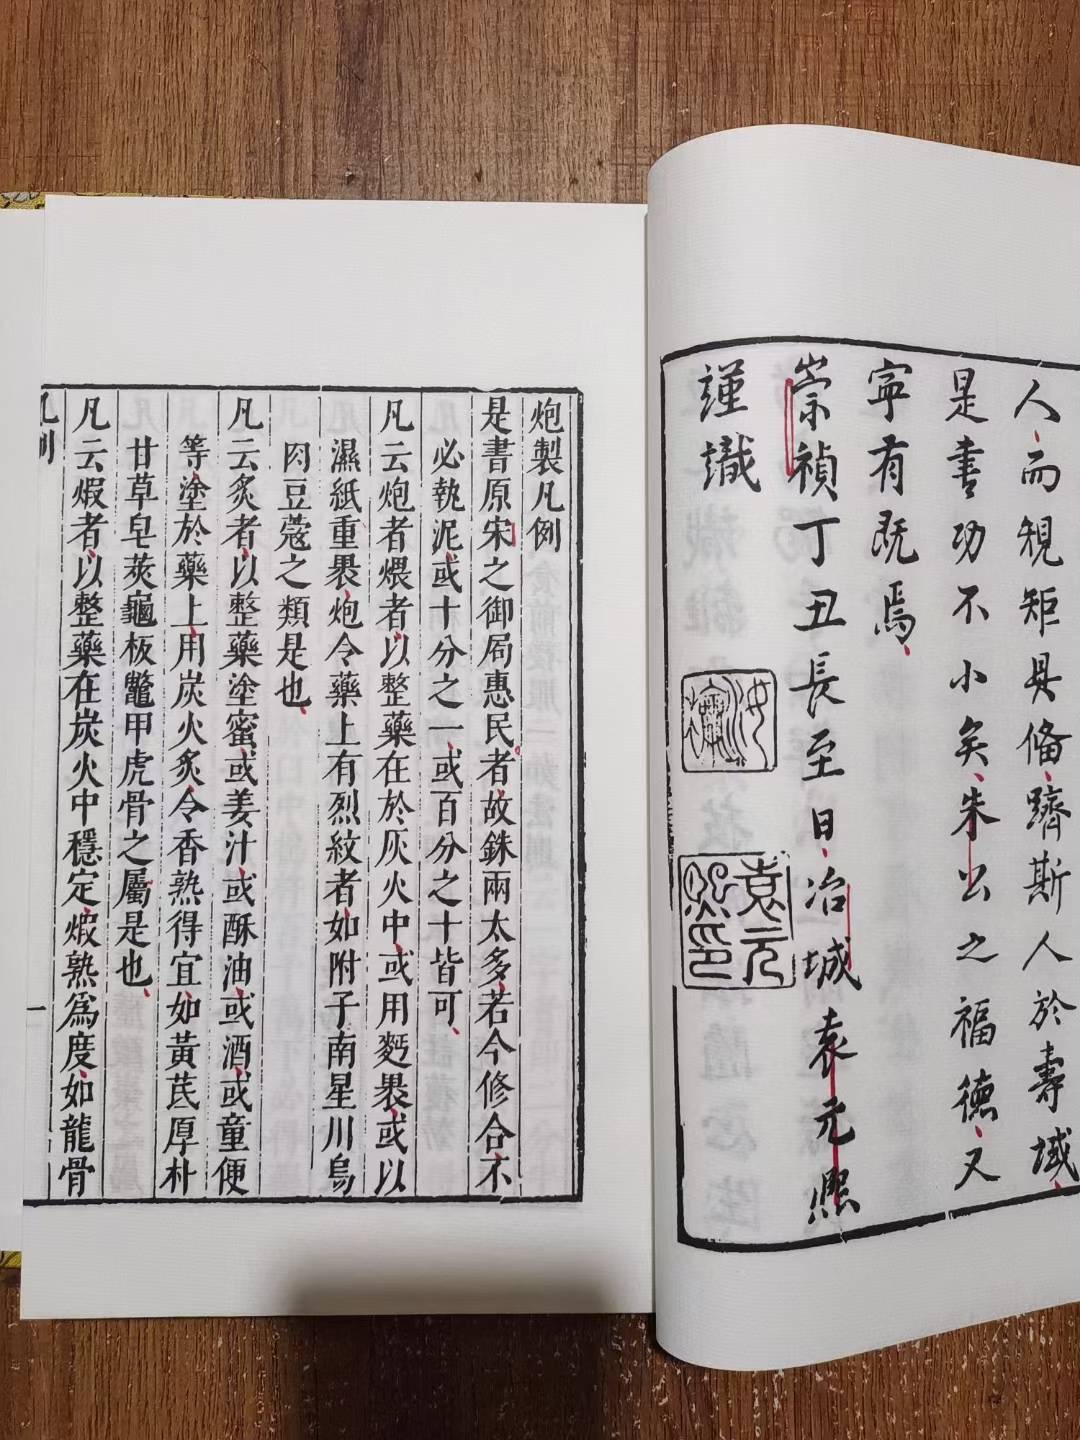 人而規矩具俻躋斯人於壽域
是書功不小矣朱公之福德又
寜有既焉
崇禎丁丑長至日冶城袁元熈
謹識
袁元
熙印
炮製凡例
是書原宋之御局惠民者故銖兩太多若今修合不
必執泥或十分之一或百分之十皆可
凡云炮者煨者以整藥在於灰火中或用麪裹或以
濕紙重裹炮令藥上有烈紋者如附子南星川烏
肉豆蔻之類是也
凡云炙者以整藥塗蜜或姜汁或酥油或酒或童便
等塗於藥上用炭火炙令香熟得宜如黃芪厚朴
甘草皂莢龜板鼈甲虎骨之屬是也
凡云煆者以整藥在炭火中穩定煆熟爲度如龍骨
凡例
一